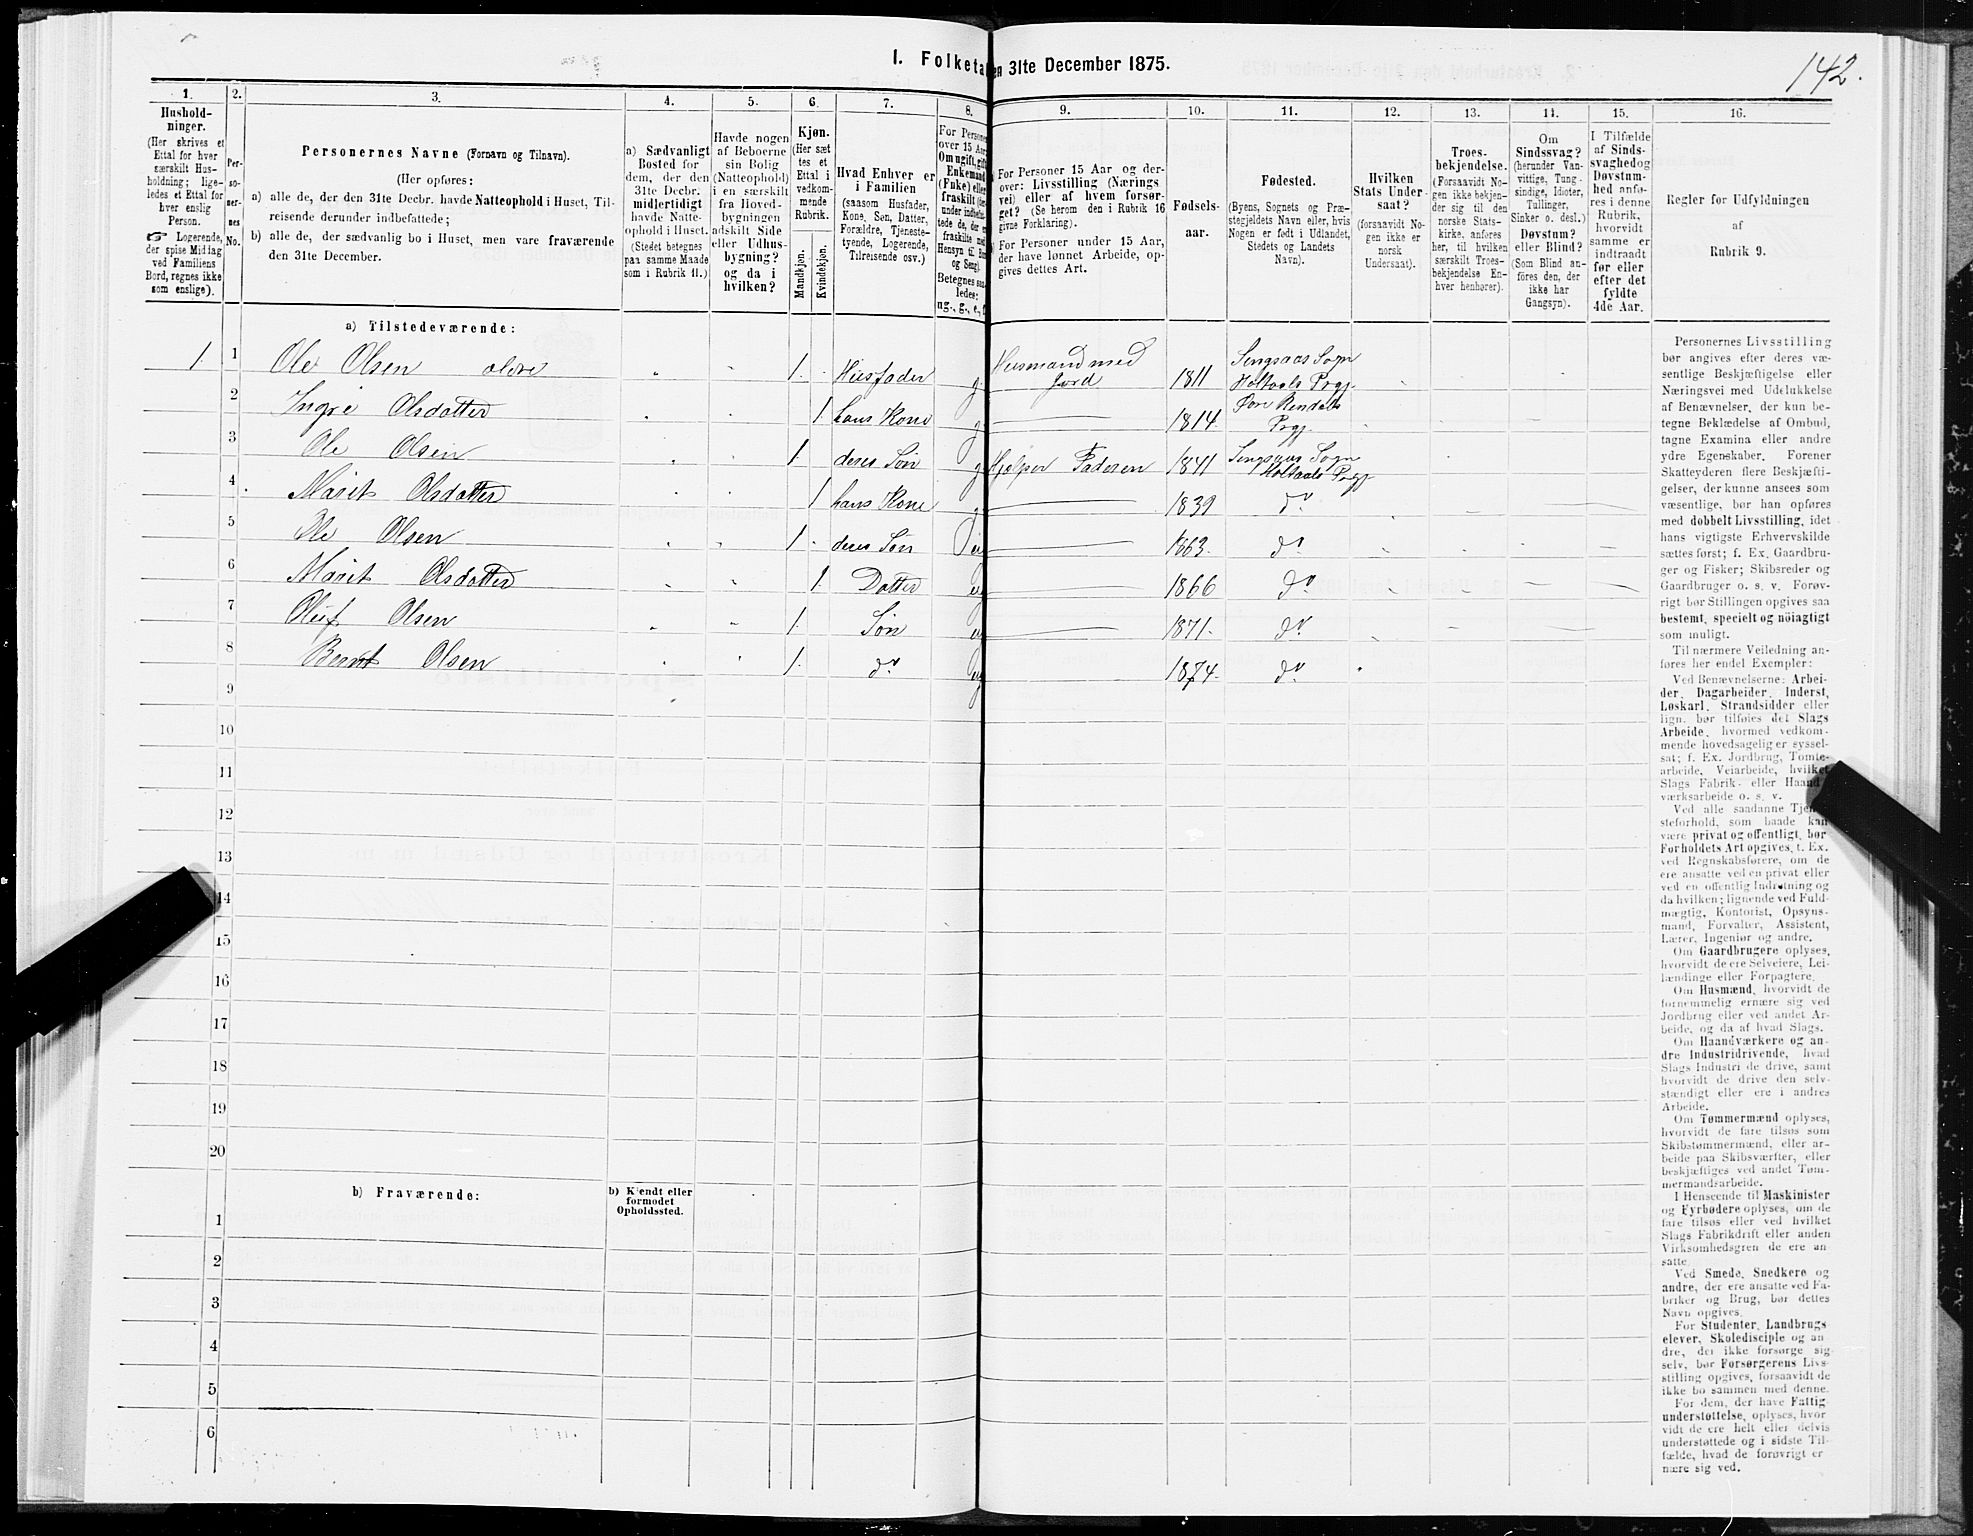 142.
1. Folketa en 31te December 1875.
1.
Hushold-
ninger.
(Her skrives et
Ettal for hver
særskilt Hus-
holdning; lige-
ledes et Ettal for
hver enslig
Person.
☞ Logerende,
der spise Middag
ved Familiens
Bord, regnes ikke
som enslige).
2.
Per-
so-
ner-
nes
No.
3.
Personernes Navne (Fornavn og Tilnavn).
(Her opføres:
a) alle de, der den 31te Decbr. havde Natteophold i Huset, Til-
reisende derunder indbefattede;
b) alle de, der sædvanlig bo i Huset, men vare fraværende
den 31te December.
4.
a) Sædvanligt
Bosted for
dem, der den
31te Decbr.
midlertidigt
havde Natte-
ophold i Huset.
(Stedet betegnes
paa samme Maade
som i Rubrik 11.)
5.
Havde nogen
af Beboerne
sin Bolig
(Natteophold)
i en særskilt
fra Hoved-
bygningen
adskilt Side
eller Udhus-
bygning?
og da i
hvilken?
6.
Kjøn.
(Her sæt
tes et
Ettal i
vedkom-
mende
Rubrik.
Mandkjøn.
Kvindekjøn.
7.
Hvad Enhver er
i Familien
(saasom Husfader,
Kone, Søn, Datter,
Forældre, Tjeneste-
tyende, Logerende,
Tilreisende osv.)
8.
For Persone
over 15 Aar:
Om ugift, gift,
Enkemand
(Enke) eller
fraskilt
Betegnes saa-
ledes:
ug., g., e., f.
9.
For Personer 15 Aar og der-
over: Livsstilling (Nærings
vei) eller af hvem forsør-
get? (Se herom den i Rubrik 16
givne Forklaring).
For Personer under 15 Aar,
der have lønnet Arbeide, op-
gives dettes Art.
10.
Fødsels-
aar.
11.
Fødested.
(Byens, Sognets og Præ-
stegjeldets Navn eller, hvis
Nogen er født i Udlandet,
Stedets og Landets
Navn).
12.
Hvilken
Stats Under-
saat?
(forsaavidt No-
gen ikke er
norsk
Undersaat).
13.
Troes-
bekjendelse.
(Forsaavidt No-
gen ikke bekjen-
der sig til den
norske Stats-
kirke, anføres
her, til hvilken
særskilt Troes-
bekjendelse En-
hver henhører).
14.
Om
Sindssvag?
(herunder Van-
vittige, Tung-
sindige, Idioter,
Tullinger,
Sinker o. desl.)
Døvstum?
eller Blind?
(Som Blind an-
føres den, der
ikke har
Gangsyn).
15.
I Tilfælde
af Sinds-
svaghed og
Døvstum-
hed anfø-
res i denne
Rubrik,
hvorvidt
samme er
indtraadt
før eller
efter det
fyldte
4de Aar.
16.
Regler for Udfyldningen
af
Rubrik 9.
a) Tilstedeværende:
1. 1 Ole Olsen ældre " " 1. Husfader g. Husmand med Jord 1811 Singsaas Sogn Holtaals Prgj.
2 Ingri Olsdatter 1 hans Kone g. 1814. Øvre Rendals Prgj.
3 Ole Olsen 1. deres Søn g. Hjelper Faderen 1841 Singsaas Sogn Holtaals Prgj
4 Marit Olsdatter 1 hans Kone g. 1839 do
5 Ole Olsen 1. deres Søn ug 1863. do
6 Marit Olsdatter 1. Datter ug 1866 do
7 Oluf Olsen 1. Søn ug 1871. do
8 Bernt Olsen 1. do ug 1874. do
9
10
11
12
13
14
15
16
17
18
19
20
b) Fraværende:
b) Kjendt eller
formodet
Opholdssted.
1
2
3
4
5
6
Personernes Livsstilling
bør angives efter deres væ-
sentlige Beskjæftigelse eller
Næringsvei med Udelukkelse
af Benævnelser, der kun be-
tegne Beklædelse af Ombud,
tagne Examina eller andre
ydre Egenskaber. Forener
Skatteyderen flere Beskjæfti-
gelser, der kunne ansees som
væsentlige, bør han opføres
med dobbelt Livsstilling, idet
hans vigtigste Erhvervskilde
sættes først; f. Ex. Gaardbru-
ger og Fisker; Skibsreder og
Gaardbruger o. s. v. Forøv-
rigt bør Stillingen opgives saa
bestemt, specielt og nøiagtigt
som muligt.
Til nærmere Veiledning an-
føres her endel Exempler:
Ved Benævnelserne: Arbei-
der, Dagarbeider, Inderst,
Løskarl, Strandsidder eller
lign. bør tilføies det Slags
Arbeide, hvormed vedkom-
mende hovedsagelig er syssel-
sat; f. Ex. Jordbrug, Tomte-
arbeide, Veiarbeide, hvilket
Slags Fabrik- eller Haand-
værksarbeide o. s. v.
Ved alle saadanne Tjene-
steforhold, som baade kan
være privat og offentligt, bør
Forholdets Art opgives, t. Ex.
ved Regnskabsførere, om de
ere ansatte ved en privat eller
ved en offentlig Indretning og
da hvilken; lignende ved Fuld-
mægtig, Kontorist, Opsyns-
mand, Forvalter, Assistent,
Lærer, Ingeniør og andre.
Om Gaardbrugere oplyses,
hvorvidt de ere Selveiere, Lei-
lændinge eller Forpagtere.
Om Husmænd, hvorvidt de
fornemmelig ernære sig ved
Jordbrug eller ved andet Ar-
beide, og da af hvad Slags.
Om Haandværkere og an-
dre Industridrivende, hvad
Slags Industri de drive, samt
hvorvidt de drive den selv-
stændigt eller ere i andres
Arbeide.
Om Tømmermænd oplyses,
hvorvidt de fare tilsøs som
Skibstømmermænd, eller ar-
beide paa Skibsværfter, eller
beskjæftiges ved andet Tøm-
mermandsarbeide.
I Henseende til Maskinister
og Fyrbødere oplyses, om de
fare tilsøs eller ved hvilket
Slags Fabrikdrift eller anden
Virksomhedsgren de ere an-
satte.
Ved Smede, Snedkere og
andre, der ere ansatte ved Fa-
briker og Brug, bør dettes
Navn opgives.
For Studenter, Landbrugs-
elever, Skoledisciple og an-
dre, der ikke forsørge sig
selv, bør Forsørgerens Livs-
stilling opgives, forsaavidt de
ikke bo sammen med denne.
For dem, der have Fattig-
understøttelse, oplyses, hvor-
vidt de ere helt eller delvis
understøttede og i sidste Til-
fælde, hvad de forøvrigt er-
nære sig ved.